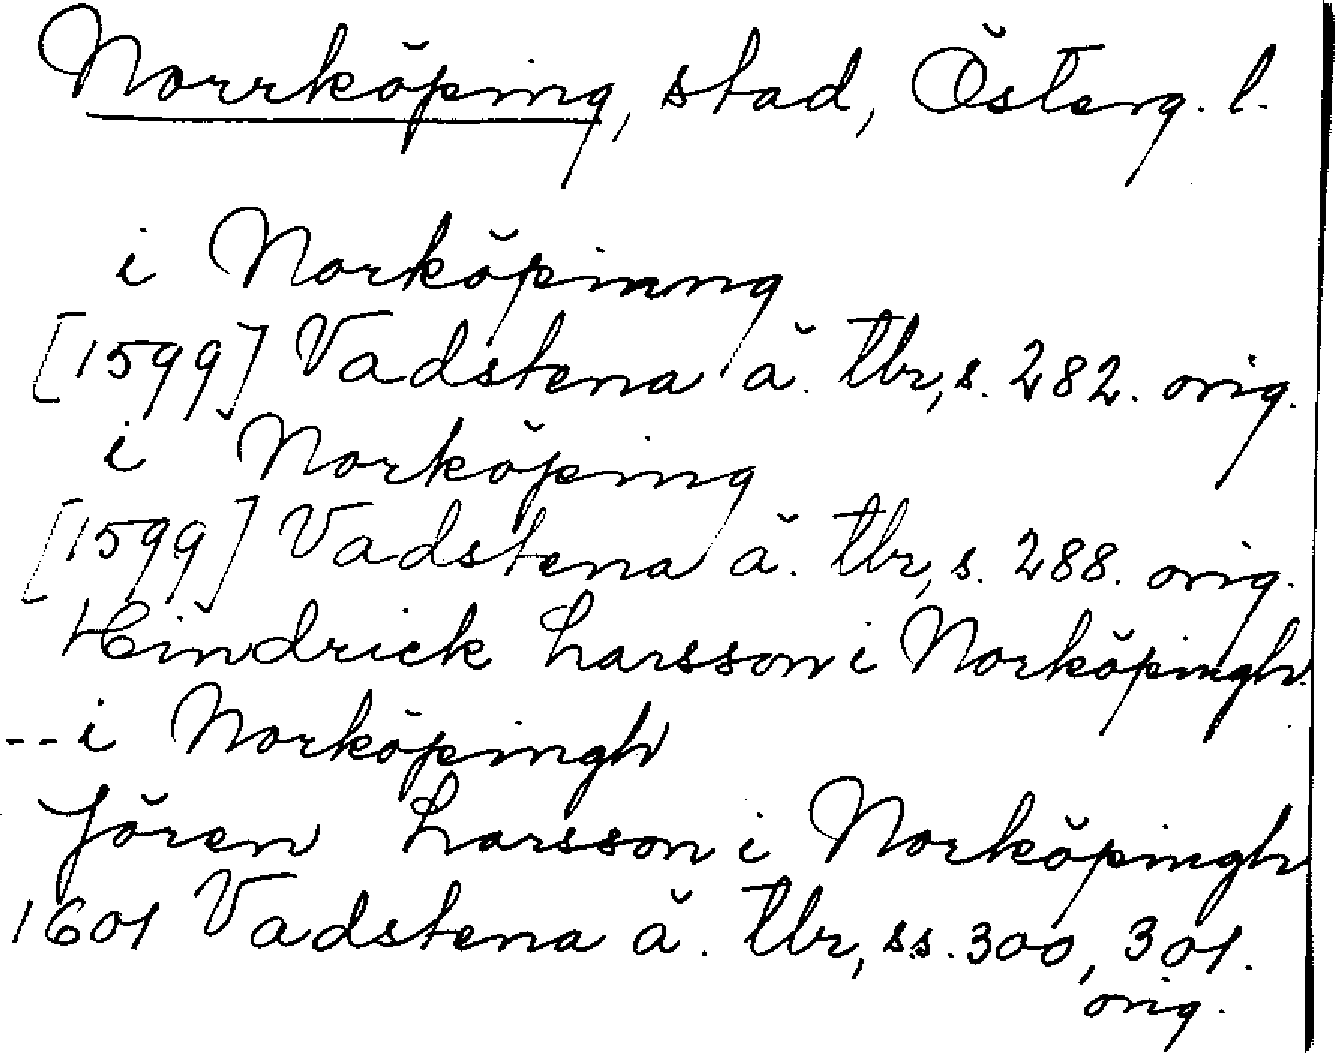 Norrköping, stad, Österg. l.
i Norköpinng
[1599] Vadstena ä. tbr, s. 282. orig.
i Norköping
[1599] Vadstena ä. tbr, s. 288. orig.
Hindrick Larsson i Norköpingh.
-- i Norköpingh
Jören Larsson i Norköpingh
1601 Vadstena ä. tbr, ss. 300, 301.
orig.